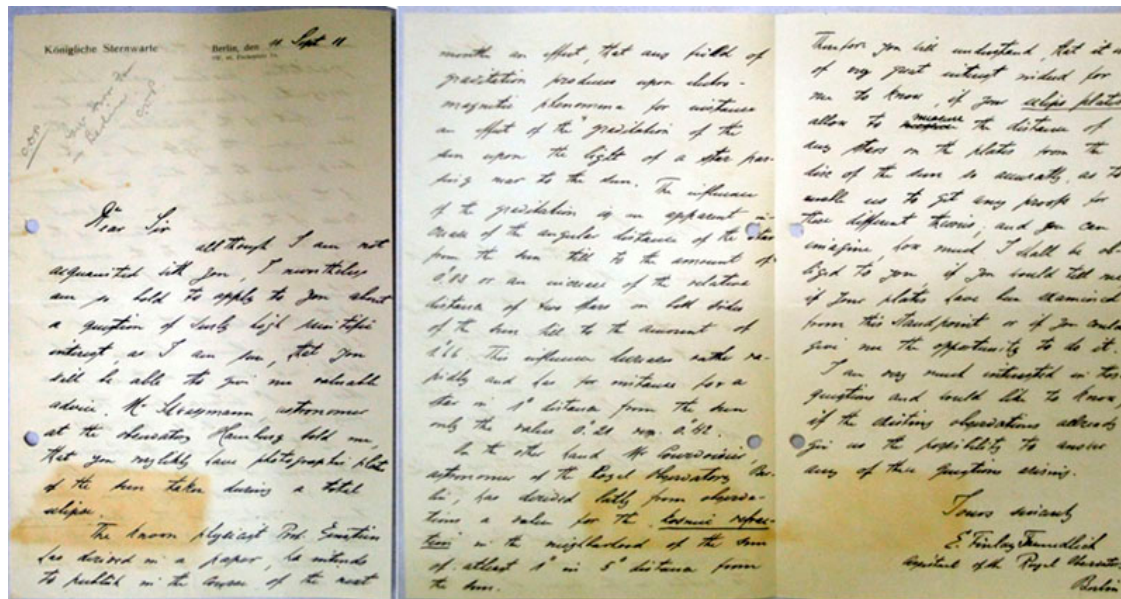 Königliche Sternwarte
Berlin, den 11 Sept 11
Dear Sir
allthough I am not
acquainted with you, I nevertheless
am so bold to apply to you about
a question of surly high scientific
interest as I am sure, that you
will be able to give me valuable
advice. Mr astronomer
at the observatory Hamburg told me,
that you have photographic plates
of the sun taken during a total
eclipse.
The known physicist Prof. Einstein
has derived in a paper, he intends
to publish in the course of the next
month an effect, that any field of
gravitation produces upon electro-
magnetic phenomena for instance
an effect of the gravitation of the
sun upon the light of a star pas-
sing near to the sun. The influence
of the gravitation is an apparent in-
crease of the angular distance of the star
from the sun till to the amount of
or an increase of the relative
distance of two stars on both sides
of the sun till to the amount of
This influence decreases rather ra-
pidly and has for instance for a
star in 1° distance from the sun
only the value
On the other hand Mr Courvoisier,
astronomer of the Royal Observatory Ber-
lin, has derived lately from observa-
tions a value for the kosmic refrac-
tion in the neighborhood of the sun
of atleast 1" in 5° distance from
the sun.
Therefore you will understand, that it is
of very great interest indeed for
me to know, if your eclips plates
allow to measure the distance of
any stars on the plates from the
disc of the sun so accuratly, as to
enable us to get any proofs for
these different theories; and you can
imagine, how much I shall be ob-
liged to you, if you would tell me
if your plates have been examined
from this standpoint or if you could
give me the opportunity to do it.
I am very much interested in this
questions and would like to know,
if the existing observations allready
give us the possibility to answer
any of these questions arising.
Yours sincerly
E. Finlay Freundlich
Assistent of the Royal Observatory
Berlin